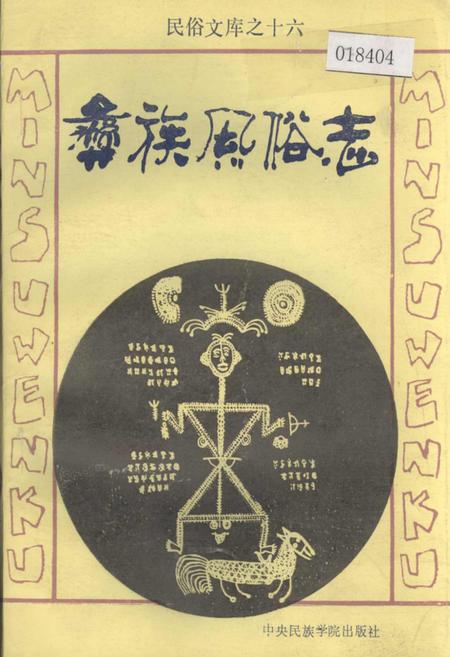 民俗文库之十六
018404
彝族风俗志
MINSUWENKU
MINSUWENKU
中央民族学院出版社